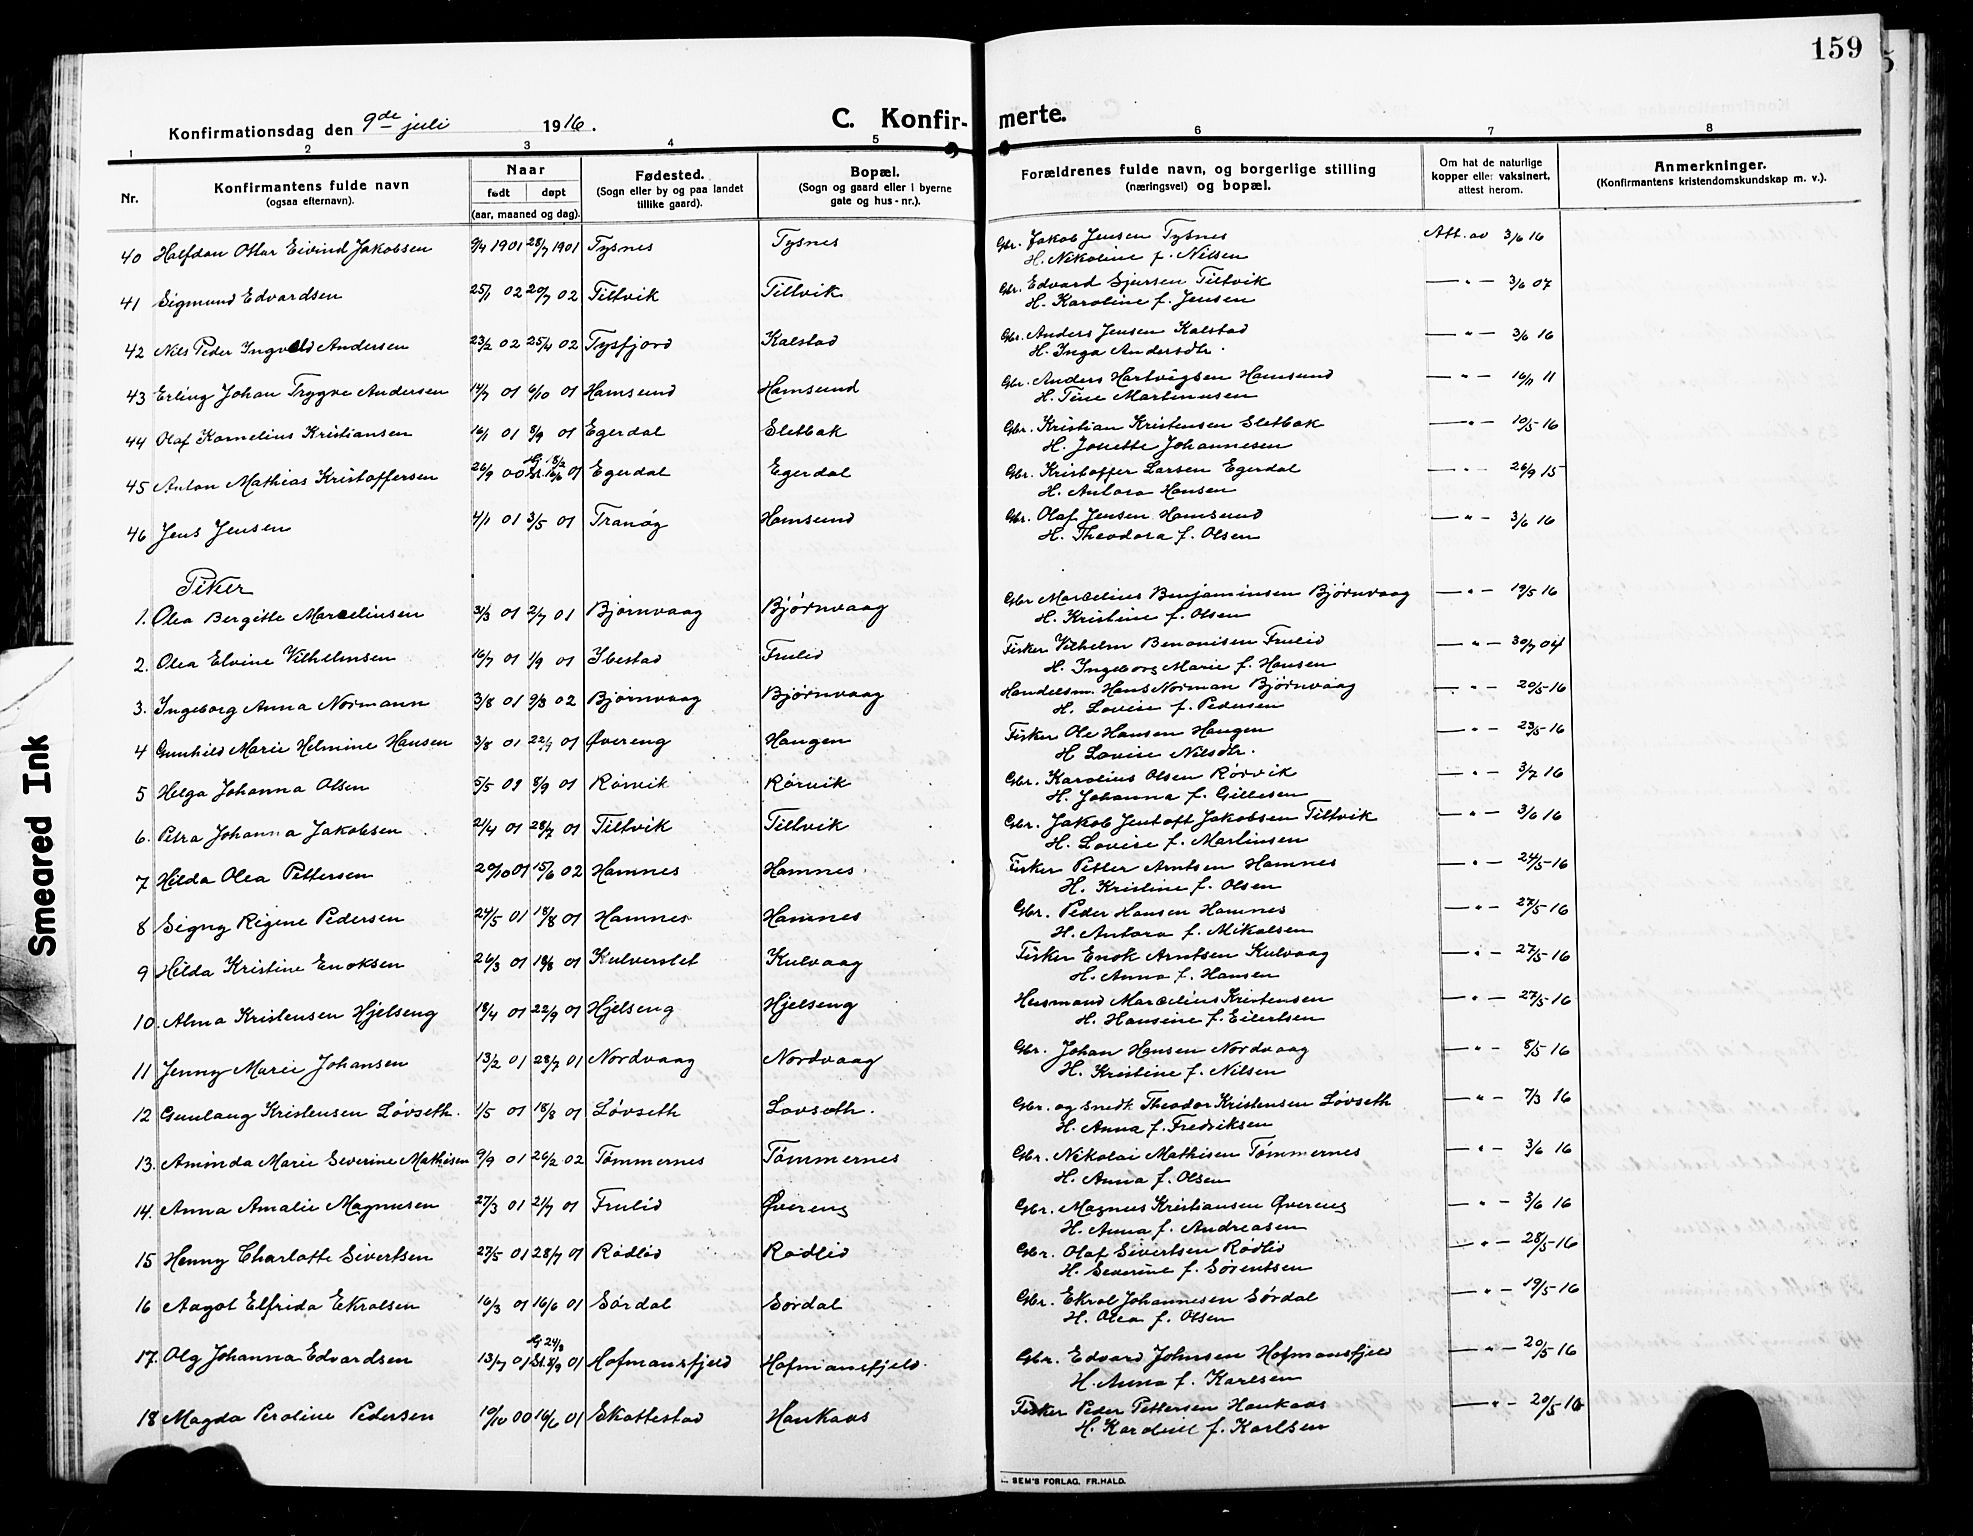 159
Konfirmationsdag den 9de juli 1916.
C. Konfir-
merte.
1 2 3 4 5 6 7 8
Nr.
Konfirmantens fulde navn
(ogsaa efternavn).
Naar
født døpt
(aar, maaned og dag).
Fødested.
(Sogn eller by og paa landet
tillike gaard).
Bopæl.
(Sogn og gaard eller i byerne
gate og hus-nr.).
Forældrenes fulde navn, og borgerlige stilling
(næringsvei) og bopæl.
Om hat de naturlige
kopper eller vaksinert,
attest herom.
Anmerkninger.
(Konfirmantens kristendomskundskap m. v.).
40 Halfdan Ottar Eivind Jakobsen 9/4 1901 28/7 1901 Tysnes Tysnes Gbr. Jakob Jensen Tysnes Att. av 3/6 16
H. Nikoline f. Nilsen
41 Sigmund Edvardsen 25/1 02 20/7 02 Tiltvik Tiltvik Gbr. Edvard Sjursen Tiltvik — " — 3/6 07
H. Karoline f. Jensen
42 Nils Peder Ingvald Andersen 23/2 02 25/4 02 Tysfjord Kalstad Gbr. Anders Jensen Kalstad — " — 3/6 16
H. Inga Andersdtr.
43 Erling Johan Trygve Andersen 14/7 01 6/10 01 Hamsund Hamsund Gbr. Anders Hartvigsen Hamsund — " — 16/11 11
H. Tine Martinusen
44 Olaf Kornelius Kristiansen 16/1 01 8/9 01 Egerdal Sletbak Gbr. Kristian Kristensen Sletbak — " — 10/5-16
H. Jonette Johannesen
45 Anton Mathias Kristoffersen 26/9 00 Hj. 18/2 St. 16/6 01 Egerdal Egerdal Gbr. Kristoffer Larsen Egerdal — " — 26/9 15
H. Antora Hansen
46 Jens Jensen 4/1 01 3/5 01 Tranøy Hamsund Gbr. Olaf Jensen Hamsund — " — 3/6 16
H. Theodora f. Olsen
Piker
1. Olea Bergitte Marcelinsen 3/3 01 2/7 01 Bjørnvaag Bjørnvaag Gbr Marcelius Benjaminsen Bjørnvaag — " — 19/5 16
H. Kristine f. Olsen
2. Olea Elvine Vilhelmsen 16/7 01 1/9 01 Ibestad Frulid Fisker Vilhelm Benonisen Frulid — " — 30/7 04
H. Ingeborg Marie f. Hansen
3. Ingeborg Anna Normann 3/8 01 9/3 02 Bjørnvaag Bjørnvaag Handelsm. Hans Norman Bjørnvaag — " — 20/5-16
H. Lovise f. Pedersen
4 Gunhild Marie Helmine Hansen 3/8 01 22/9 01 Øvereng Haugen Fisker Ole Hansen Haugen — " — 23/5-16
H Lovise Nilsdtr.
5 Helga Johanna Olsen 5/5 01 8/9 01 Rørvik Rørvik Gbr. Karolius Olsen Rørvik — " — 3/7 16
H. Johanna f. Gillesen
6. Petra Johanna Jakobsen 21/4 01 28/7 01 Tiltvik Tiltvik Gbr. Jakob Jentoft Jakobsen Tiltvik — " — 3/6 16
H. Lovise f. Martinsen
7 Hilda Olea Pettersen 20/10 01 15/6 02 Hamnes Hamnes. Fisker Petter Arntsen Hamnes — " — 24/5-16
H. Kristine f. Olsen
8 Signy Regine Pedersen 24/5 01 18/8 01 Hamnes Hamnes Gbr. Peder Hansen Hamnes — " — 27/5-16
H. Antora f. Mikalsen
9 Hilda Kristine Enoksen 26/3 01 18/8 01 Kulverstet Kulvaag Fisker Enok Arntsen Kulvaag — " — 27/5-16
H. Anna f. Hansen
10. Alma Kristensen Hjelseng 18/4 01 22/9 01 Hjelseng Hjelseng Husmand Marcelius Kristensen — " — 27/5-16
H. Hansine f. Eilertsen
11 Jenny Marie Johansen 13/2 01 28/7 01 Nordvaag Nordvaag Gbr. Johan Hansen Nordvaag — " — 8/5-16
H. Kristine f. Nilsen
12 Gunlaug Kristensen Løvseth. 1/5 01 18/8 01 Løvseth Løvseth. Gbr. og snedk. Theodor Kristensen Løvseth — " — 7/3 16
H. Anna f. Fredriksen
13. Aminda Marie Severine Mathisen 9/9 01 26/2 02 Tømmernes Tømmernes Gbr. Nikolai Mathisen Tømmernes — " — 3/6 16
H. Anna f. Olsen
14. Anna Amalie Magnusen 27/3 01 21/7 01 Frulid Øvereng Gbr. Magnus Kristiansen Øvereng — " — 3/6 16
H. Anna f. Andreasen
15 Henny Charlotte Sivertsen 27/5 01 28/7 01 Rødlid Rødlid Gbr. Olaf Sivertsen Rødlid — " — 28/5-16
H. Severine f. Sørentsen
16 Aagot Elfrida Ekrolsen 16/3 01 16/6 01 Sørdal Sørdal Gbr. Ekrol Johannesen Sørdal — " — 19/5-16
H. Olea f. Olsen
17. Olg Johanna Edvardsen 13/7 01 Hj 24/8 St. 8/9 01 Hofmansfjeld Hofmansfjeld. Gbr. Edvard Johnsen Hofmansfjeld — " — 20/5-16
H. Anna f. Karlsen
18 Magda Peroline Pedersen 10/10 00 16/6 01 Skottestad Haukaas Fisker Peder Pettersen Haukaas — " — 20/5-16
H. Karoline f. Karlsen
SEM'S FORLAG, FR.HALD.
Smeared Ink